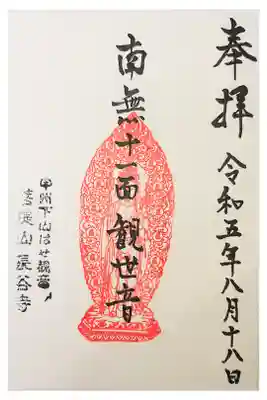 奉拝 令和五年八月十八日
南無十一面観世音
甲州下山はせ観音
長谷寺